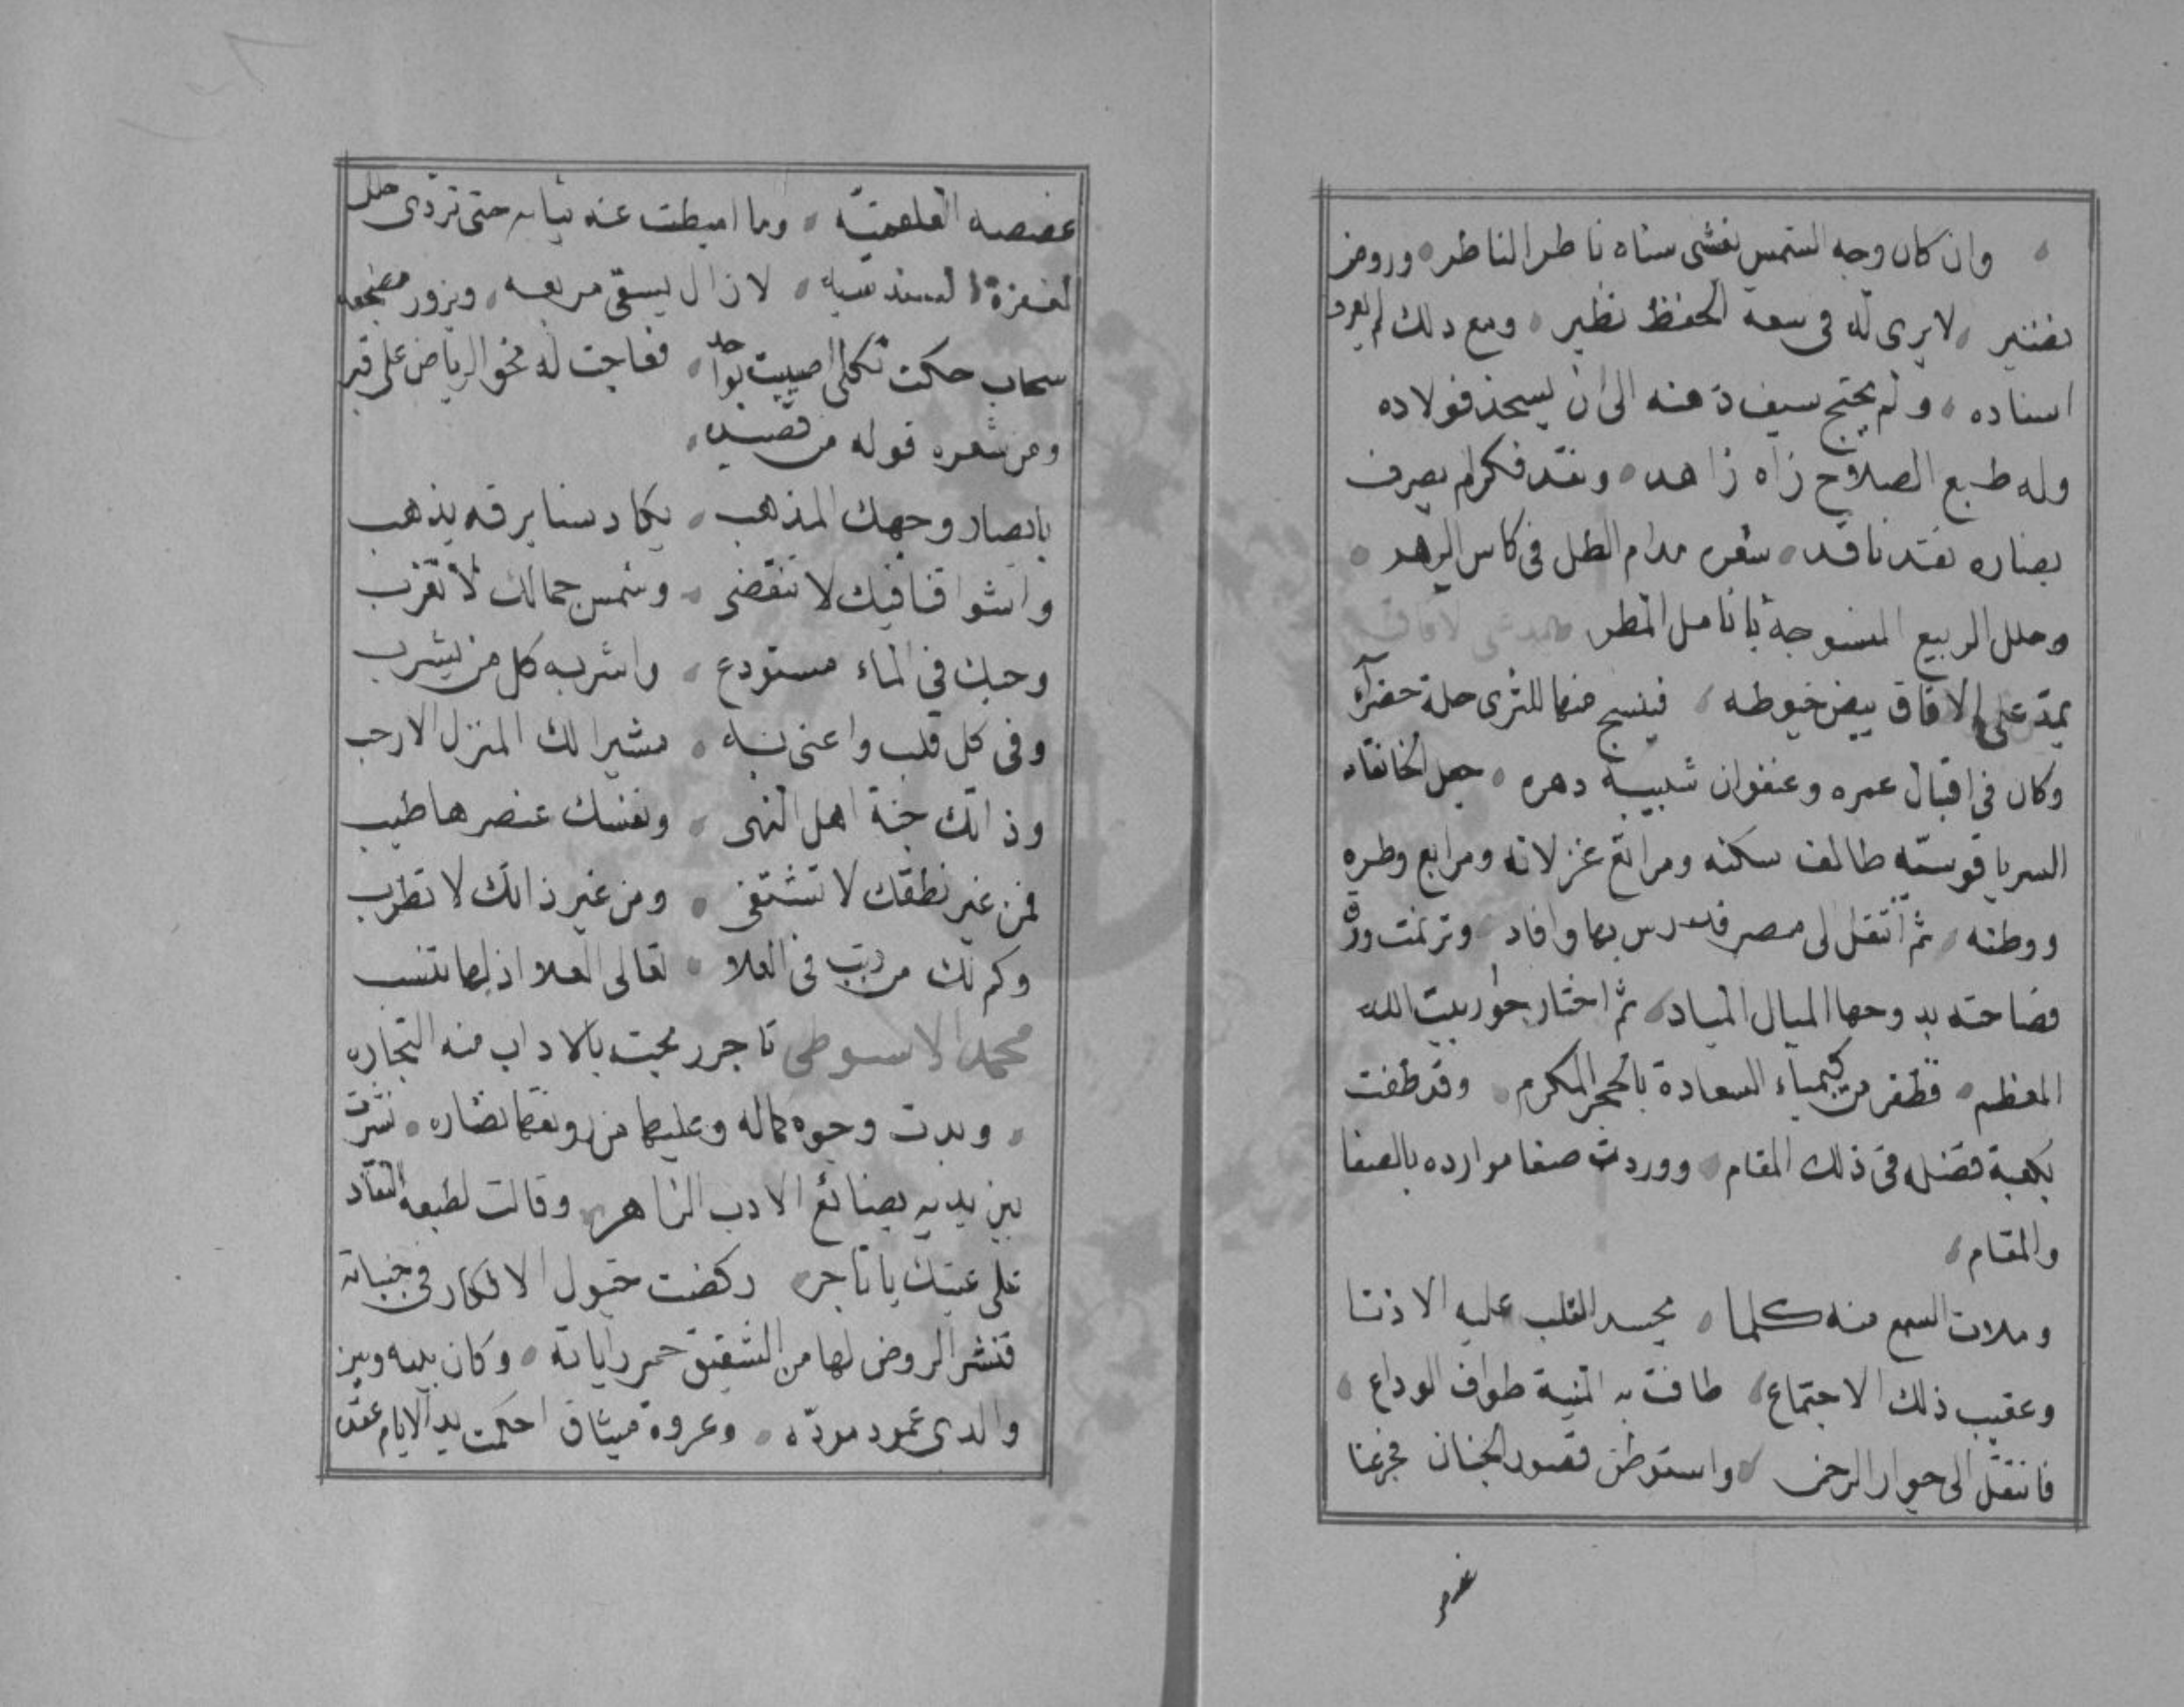 وان كان وجه الشمس يغشى سناه ناظر الناظر وروض
نضير لا يرى له فى سعة الحفظ نظير ومع ذلك لم يعرف
اسناده ولم يحتج سيف ذهنه الى ان يسحذ فولاده
وله طبع الصلاح زاه زاهد ونقد فكر لم يصرف
نضاره نقد ناقد شعره مدام الطل فى كاس الزهر
وحلل الربيع المنسوجة بانامل المطر
يمدّ على الافاق بيض خيوطه فينسج منها للثرى حلة خضرآء
وكان فى اقبال عمره وعنفوان شبيبة دهره جعل الخانقاه
السرياقوسيّة سكنه ومراتع غزلانه ومرابع وطره
ووطنه ثم انتقل الى مصر فدرس بها وافاد وترنمت ورق
فصاحته بدوحها الميال المياد ثم اختار جوار بيت الله
المعظم فظفر من كيمياء السعادة بالحجر المكرم وقد طفت
بكعبة فضله فى ذلك المقام ووردت صفا موارده بالصفا
والمقام
وملات السمع منه كلما يحسد القلب عليه الاذنا
وعقيب ذلك الاجتماع طافت به المنية طواف الوداع
فانتقل الى جوار الرحمن واستوطن قصور الجنان فجرعنا
غصصه
غصصه العلقميّة وما اميطت عنه ثيابه حتى تردّى حلل
المغفرة السندسيه لا زال يسقى مربعه ويزور مضجعه
سحاب حكت ثكلى اصيبت بواحد فعاجت له نحو الرياض على قبر
ومن شعره قوله من قصيده
بابصار وجهك المذهب يكاد سنا برقه يذهب
واشواقنا فيك لا تنقضى وشمس جمالك لا تغرب
وحبك فى الماء مستودع واشربه كل من يشرب
وفى كل قلب مشيرا لك المنزل الارحب
وذاتك جنة اهل النهى ونفسك عنصرها طيب
فمن غير نطقك لا تشتفى ومن غير ذاتك لا تطرب
وكم لك من رتب فى العلا تعالى العلا اذ لها تنسب
محمد الاسيوطى تاجر ربحت بالاداب منه التجاره
وبدت وجوه كماله وعليها من رونقها نضاره نشرت
بين يديه بضائع الادب الزاهر وقالت لطبعه النقاد
على عينك يا تاجر ركضت خيول الافكار فى جنباته
فنشر الروض لها من الشقيق حمر راياته وكان بينه وبين
والدى عهود مودّه وعروة ميثاق احكمت يد الايام عقده